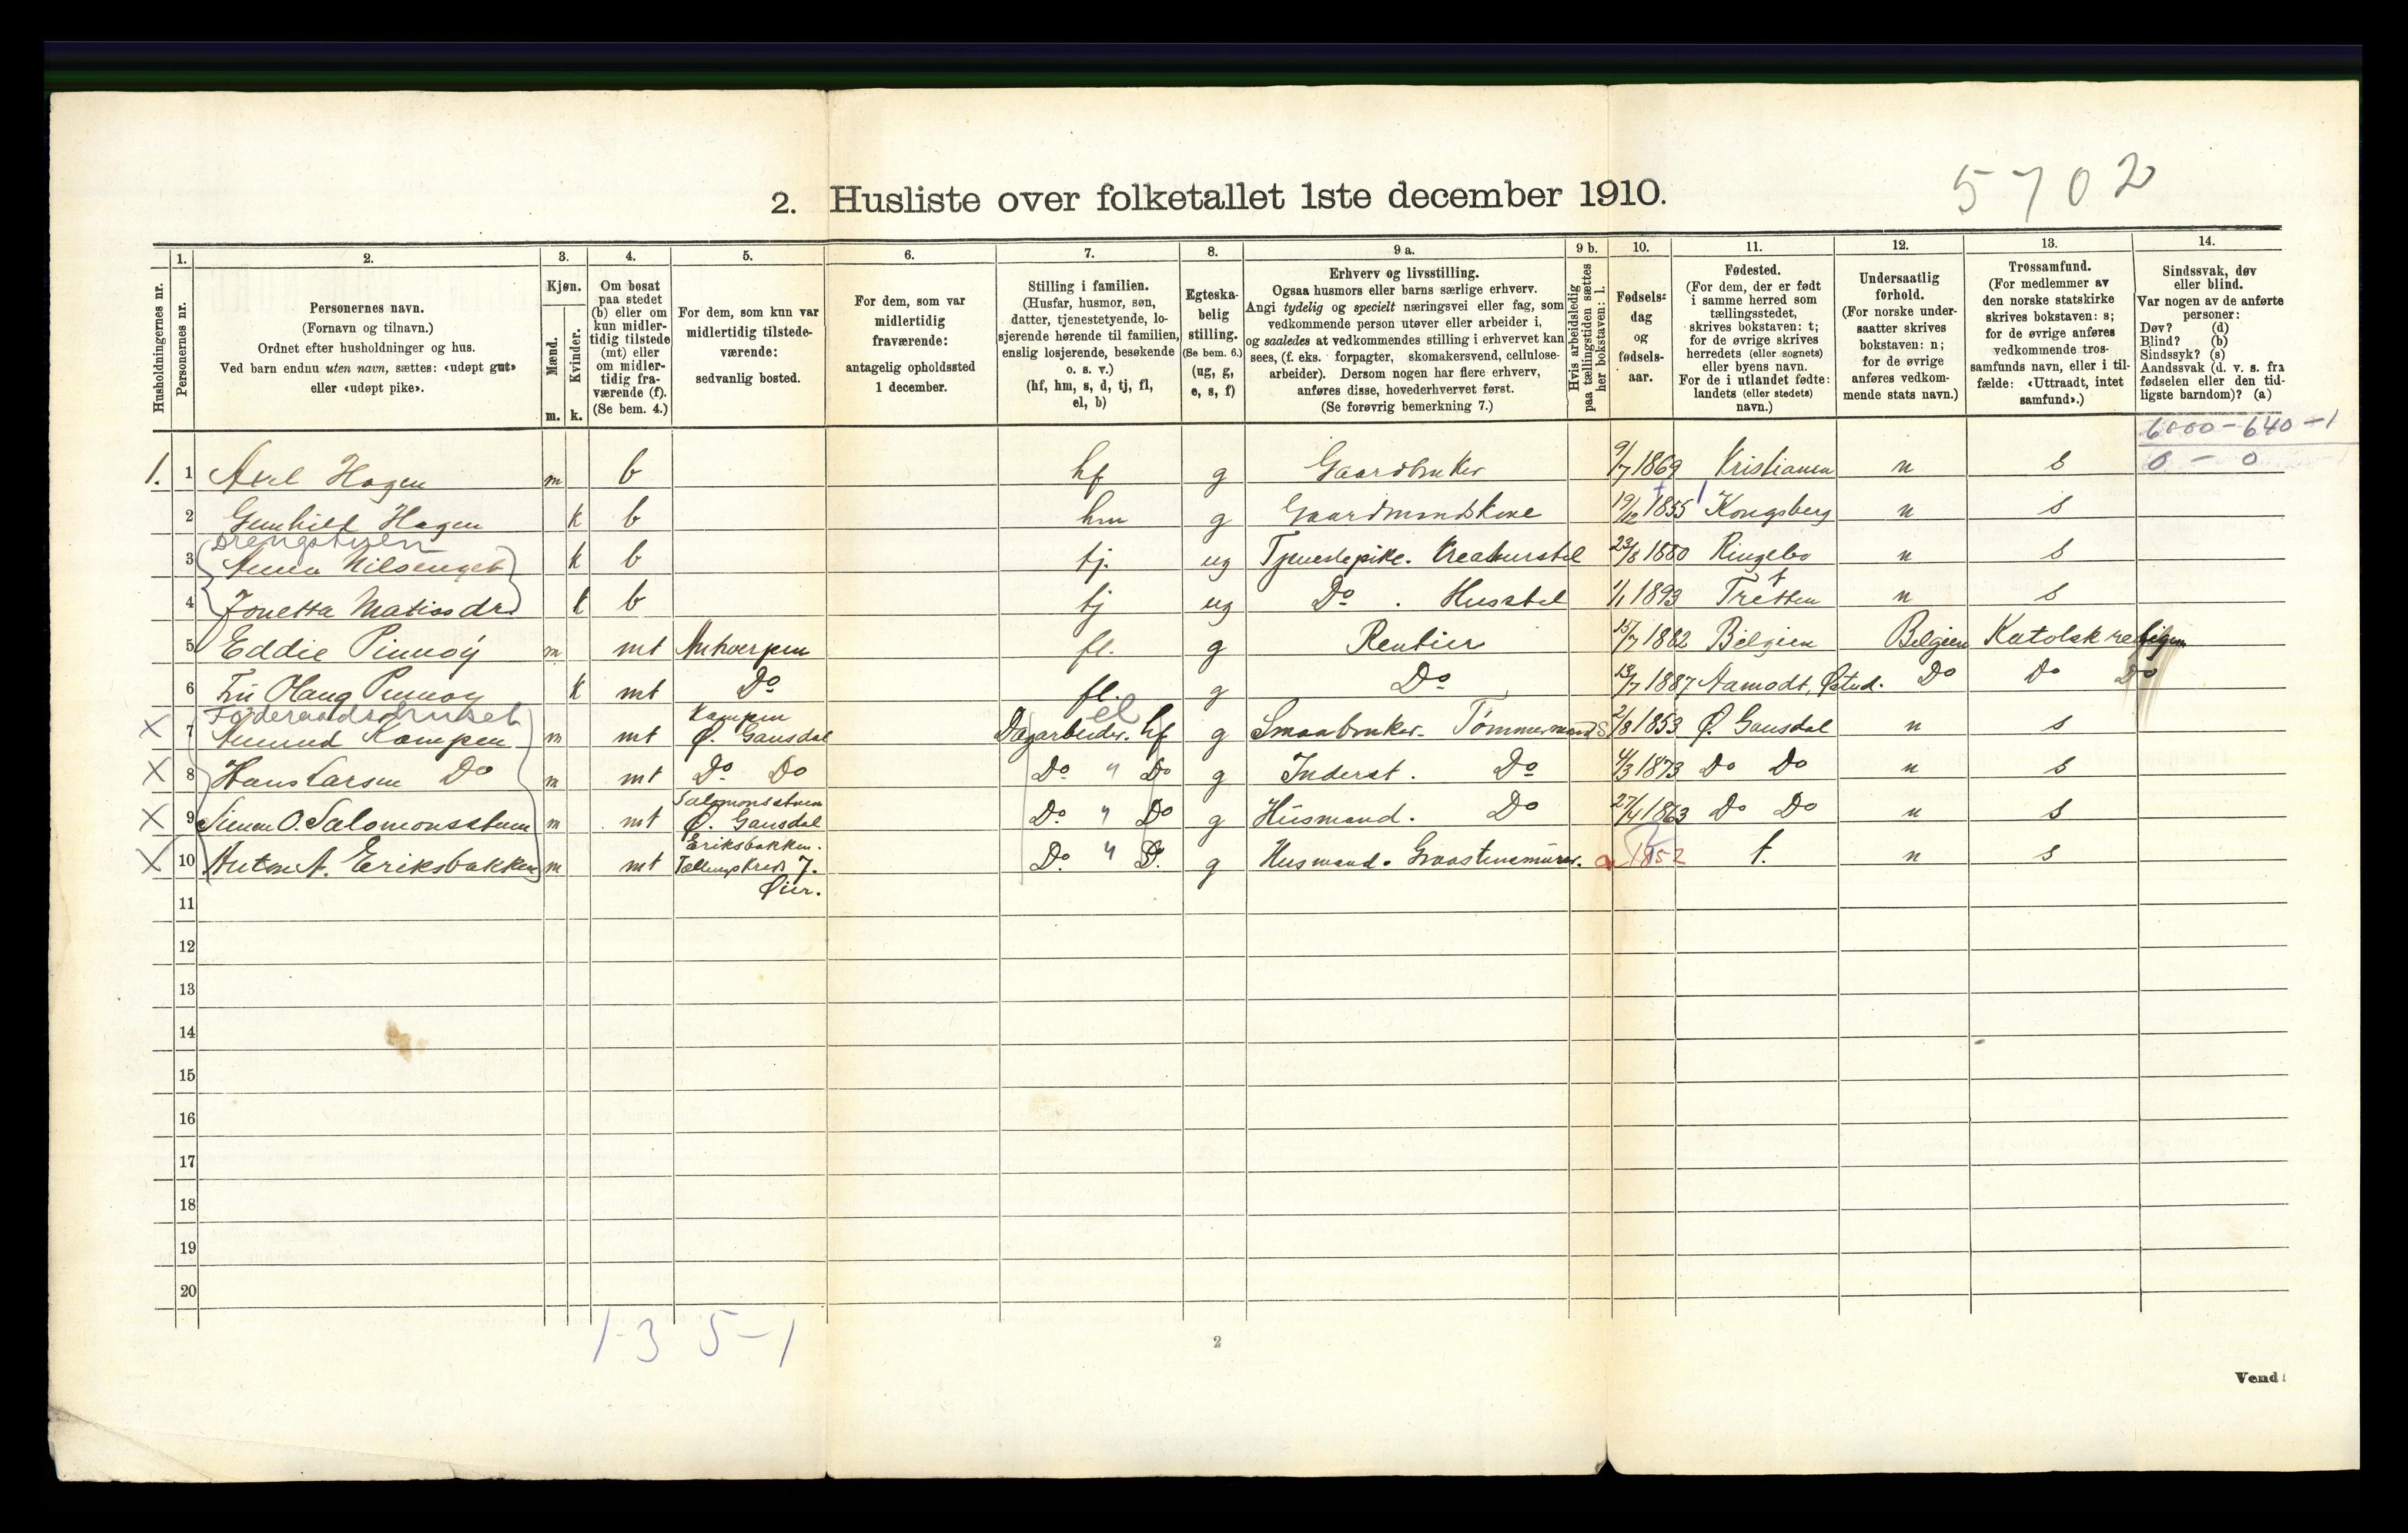 5702
2. Husliste over folketallet 1ste december 1910.
1. 2. 3. 4. 5. 6. 7. 8. 9 a. 9 b. 10. 11. 12. 13. 14.
Husholdningernes nr.
Personernes nr.
Personernes navn.
(Fornavn og tilnavn.)
Ordnet efter husholdninger og hus.
Ved barn endnu uten navn, sættes: «udøpt gut»
eller «udøpt pike».
Kjøn.
Mænd.
Kvinder.
m. k.
Om bosat
paa stedet
(b) eller om
kun midler-
tidig tilstede
(mt) eller
om midler-
tidig fra-
værende (f).
(Se bem. 4.)
For dem, som kun var
midlertidig tilstede-
værende:
sedvanlig bosted.
For dem, som var
midlertidig
fraværende:
antagelig opholdssted
1 december.
Stilling i familien.
(Husfar, husmor, søn,
datter, tjenestetyende, lo-
sjerende hørende til familien,
enslig losjerende, besøkende
o. s. v.)
(hf, hm, s, d, tj, fl,
el, b)
Egteska-
belig
stilling.
(Se bem. 6.)
(ug, g,
e, s, f)
Erhverv og livsstilling.
Ogsaa husmors eller barns særlige erhverv.
Angi tydelig og specielt næringsvei eller fag, som
vedkommende person utøver eller arbeider i,
og saaledes at vedkommendes stilling i erhvervet kan
sees, (f. eks. forpagter, skomakersvend, cellulose-
arbeider). Dersom nogen har flere erhverv,
anføres disse, hovederhvervet først.
(Se forøvrig bemerkning 7.)
Hvis arbeidsledig
paa tællingstiden sættes
her bokstaven: l.
Fødsels-
dag
og
fødsels-
aar.
Fødested.
(For dem, der er født
i samme herred som
tællingsstedet,
skrives bokstaven: t;
for de øvrige skrives
herredets (eller sognets)
eller byens navn.
For de i utlandet fødte:
landets (eller stedets)
navn.)
Undersaatlig
forhold.
(For norske under-
saatter skrives
bokstaven: n;
for de øvrige
anføres vedkom-
mende stats navn.)
Trossamfund.
(For medlemmer av
den norske statskirke
skrives bokstaven: s;
for de øvrige anføres
vedkommende tros-
samfunds navn, eller i til-
fælde: «Uttraadt, intet
samfund».)
Sindssvak, døv
eller blind.
Var nogen av de anførte
personer:
Døv? (d)
Blind? (b)
Sindssyk? (s)
Aandssvak (d. v. s. fra
fødselen eller den tid-
ligste barndom)? (a)
6000-640-1
0 - 0
1. 1 Axel Hagen m b hf g Gaardbruker 9/7 1869 Kristiania n s
2 Gunhild Hagen k b hm g Gaardmandskone 19/12 1855 Kongsberg n s
Drengstuen
3 Anna Nilsenget k b tj. ug Tjenestepike. Kreaturstel 23/8 1880 Ringebo n s
4 Jonetta Matisdr. k b tj ug Do . Husstel 1/1 1893 Tretten n s
5 Eddie Pinnoÿ m mt Antwerpen fl. g Rentier 15/7 1882 Belgien Belgien Katolsk religion
6 Fru Haug Pinnoy k mt Do fl. g Do 13/7 1887 Aamodt, Østerd. Do Do Do
Føderaadshuset Kampen el
X 7 Amund Kampen m mt Ø. Gausdal Dagarbeider. hf g Smaabruker. Tømmermand 2/8 1853 Ø. Gausdal n s
X 8 Hans Larsen Do m mt Do Do Do " Do g Inderst. Do 4/3 1873 Do Do n s
Salomonsstuen
X 9 Simen O. Salomonsstuen m mt Ø. Gausdal Do " Do g Husmand. Do 27/4 1863 Do Do n s
Eriksbakken.
X 10 Anton A. Eriksbakken m mt Tællingskreds 7. Do. " D. g Husmand. Graastensmurer. 1852 t. n s
Øier.
11
12
13
14
15
16
17
18
19
20
1-3 5-1
2
Vend!